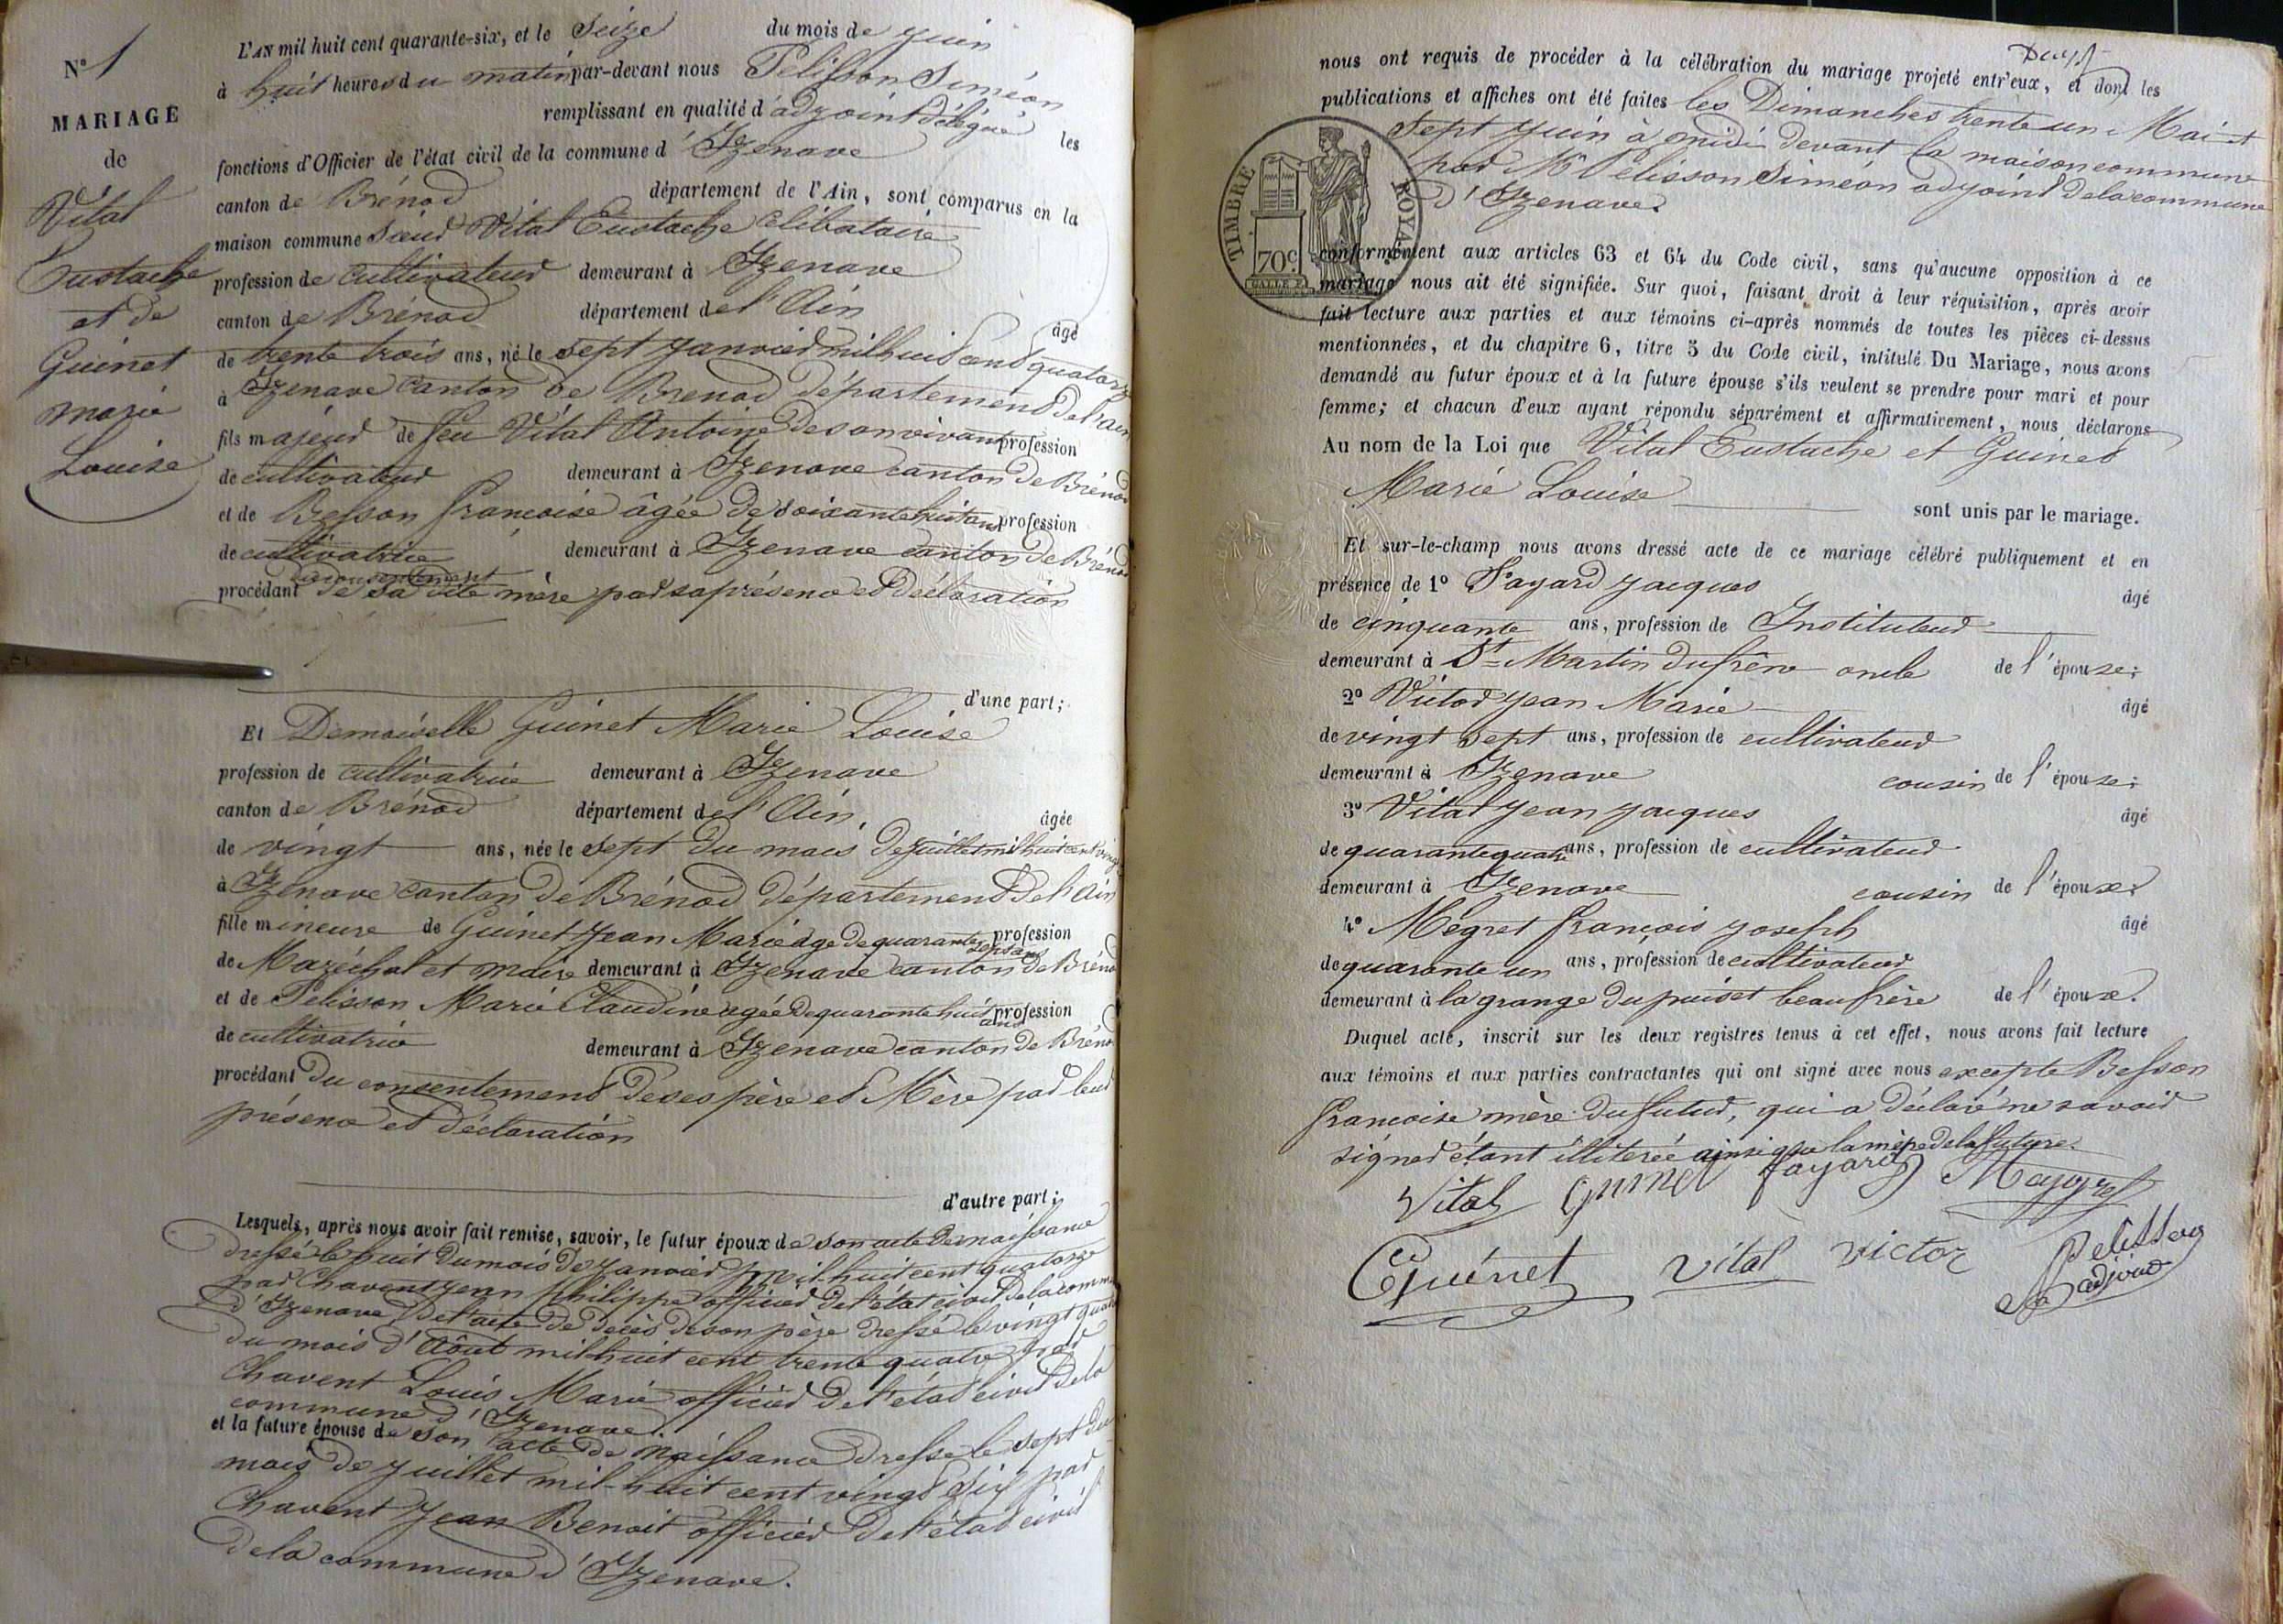 N° 1
MARIAGE
de
Vital
Eustache
et de
Guinet
marie
Louise
L'AN mil huit cent quarante-six, et le Seize du mois de juin
à huit heures du matin par-devant nous Pelisson Siméon
remplissant en qualité d'adjoint délégué les
fonctions d'Officier de l'état civil de la commune d'Izenave
canton de Brénod département de l'Ain, sont comparus en la
maison commune Sieur Vital Eustache célibataire
profession de cultivateur demeurant à Izenave
canton de Brénod département de l'Ain âgé
de trente trois ans, né le sept janvier mil huit cent quatorze
à Izenave canton de Brenod département de l'ain
fils majeur de feu Vital Antoine de son vivant profession
de cultivateur demeurant à Izenave canton de Brénod
et de Besson françoise âgée de soixante huit ans profession
de cultivatrice demeurant à Izenave canton de Brénod
du consentement
procédant de sa dite mère par sa présence et déclaration
d'une part;
Et Demoiselle Guinet Marie Louise
profession de cultivatrice demeurant à Izenave
canton de Brénod département de l'Ain, âgée
de vingt ans, née le sept du mois de juillet mil huit cent vingt
à Izenave canton de Brénod département de l'Ain
fille mineure de Guinet Jean Marie âgé de quarante sept ans profession
de Maréchal et maire demeurant à Izenave canton de Brénod
et de Pelisson Marie Claudine agée de quarante huit ans profession
de cultivatrice demeurant à Izenave canton de Brénod
procédant du consentement de ses père et Mère par leur
présence et déclaration
d'autre part;
Lesquels, après nous avoir fait remise, savoir, le futur époux de son acte de naissance
dressé le huit du mois de janvier mil huit cent quatorze
par Chavent jean philippe officier de l'état civil de la commune
d'Izenave, de l'acte de décès de son père dressé le vingt quatre
du mois d'Août mil huit cent trente quatre par
Chavent Louis Marie officier de l'état civil de la
commune d'Izenave.
et la future épouse de son acte de naissance dressé le sept du
mois de juillet mil-huit cent vingt six par
Chavent Jean Benoit officier de l'état civil
de la commune d'Izenave.
nous ont requis de procéder à la célébration du mariage projeté entr'eux, et dont les
publications et affiches ont été faites les Dimanches trente un Mai et
sept juin à midi devant la maison commune
par Mr Pelisson Siméon adjoint de la commune
d'Izenave.
TIMBRE ROYAL
70c
conformément aux articles 63 et 64 du Code civil, sans qu'aucune opposition à ce
mariage nous ait été signifiée. Sur quoi, faisant droit à leur réquisition, après avoir
fait lecture aux parties et aux témoins ci-après nommés de toutes les pièces ci-dessus
mentionnées, et du chapitre 6, titre 5 du Code civil, intitulé Du Mariage, nous avons
demandé au futur époux et à la future épouse s'ils veulent se prendre pour mari et pour
femme; et chacun d'eux ayant répondu séparément et affirmativement, nous déclarons
Au nom de la Loi que Vital Eustache et Guinet
Marie Louise
sont unis par le mariage.
Et sur-le-champ nous avons dressé acte de ce mariage célébré publiquement et en
présence de 1° Fayard jacques âgé
de cinquante ans, profession de Instituteur
demeurant à St Martin dufrène oncle de l'épouse;
2° Victor jean Marie âgé
de vingt sept ans, profession de cultivateur
demeurant à Izenave cousin de l'épouse;
3° Vital jean jacques âgé
de quarante quatre ans, profession de cultivateur
demeurant à Izenave cousin de l'époux;
4° Mégret françois joseph âgé
de quarante un ans, profession de cultivateur
demeurant à la grange du puiset beaufrère de l'époux.
Duquel acte, inscrit sur les deux registres tenus à cet effet, nous avons fait lecture
aux témoins et aux parties contractantes qui ont signé avec nous excepte Besson
françoise mère du futur, qui a déclaré ne savoir
signer étant illiterée ainsi que la mère de la future.
Vital Guinet fayard Maygret
Guinet vital victor Pelisson
adjoint